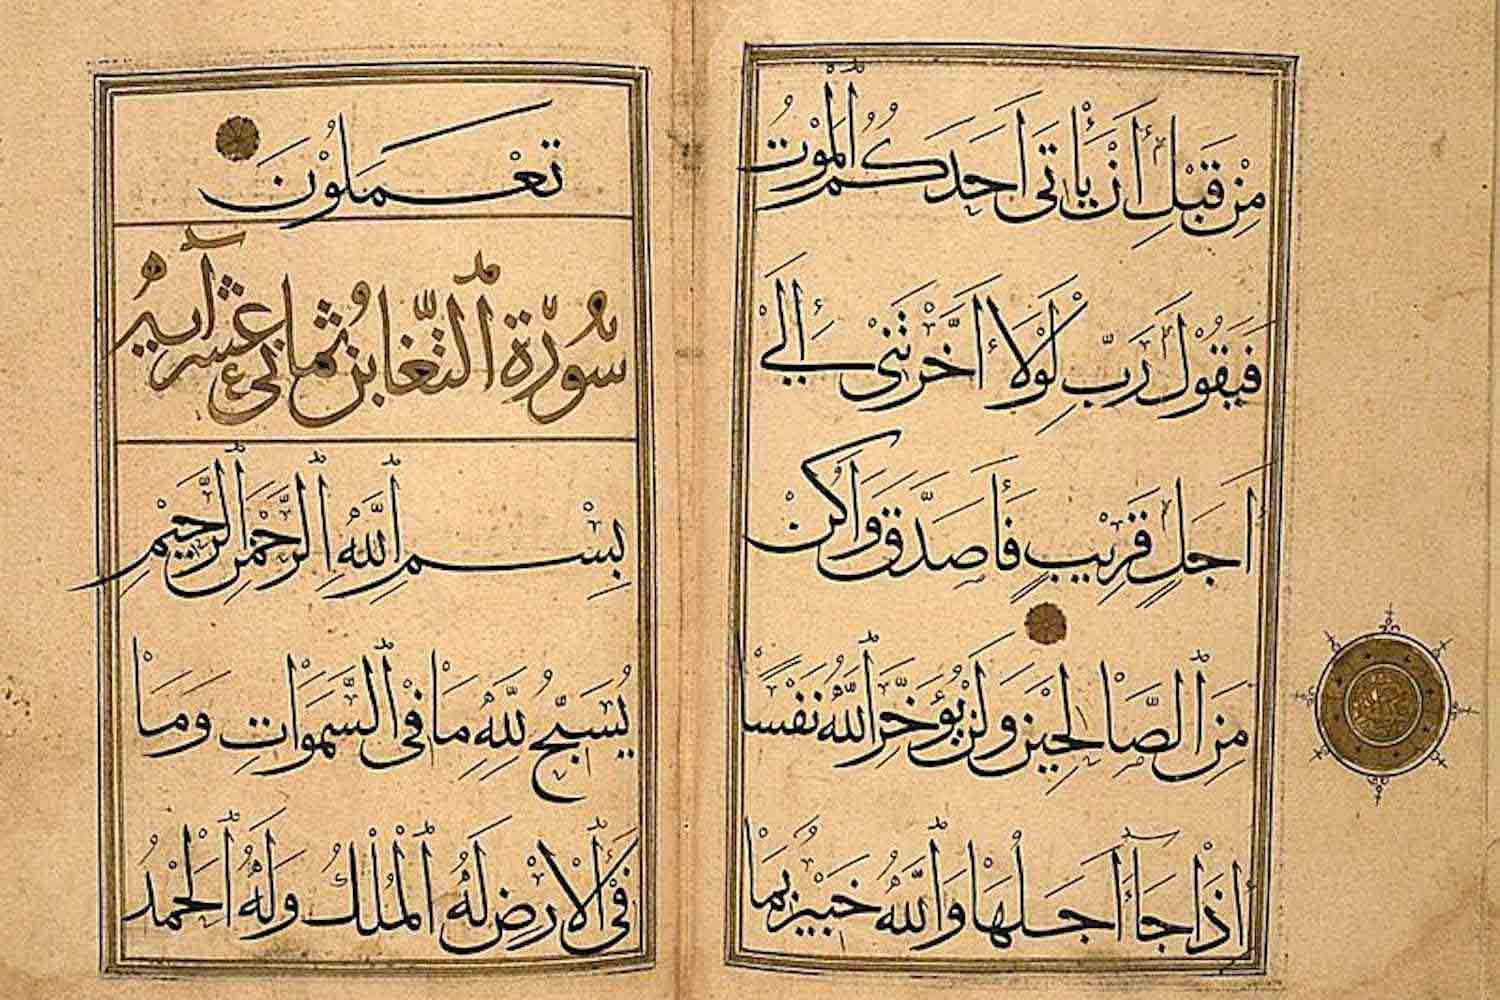 مِنْ قَبْلِ اَنْ يَأْتِىَ اَحَدَكُمُ الْمَوْتُ
فَيَقُوْلَ رَبِّ لَوْلَا اَخَّرْتَنِىْ اِلٰى
اَجَلٍ قَرِيْبٍ فَاَصَّدَّقَ وَاَكُنْ
مِنَ الصَّالِحِيْنَ وَلَنْ يُؤَخِّرَ اللّٰهُ نَفْسًا
اِذَا جَآءَ اَجَلُهَا وَاللّٰهُ خَبِيْرٌ بِمَا
تَعْمَلُوْنَ
سُوْرَةُ التَّغَابُنِ ثَمَانِى عَشَرَ آيَةً
بِسْمِ اللّٰهِ الرَّحْمٰنِ الرَّحِيْمِ
يُسَبِّحُ لِلّٰهِ مَا فِى السَّمَوَاتِ وَمَا
فِى الْاَرْضِ لَهُ الْمُلْكُ وَلَهُ الْحَمْدُ